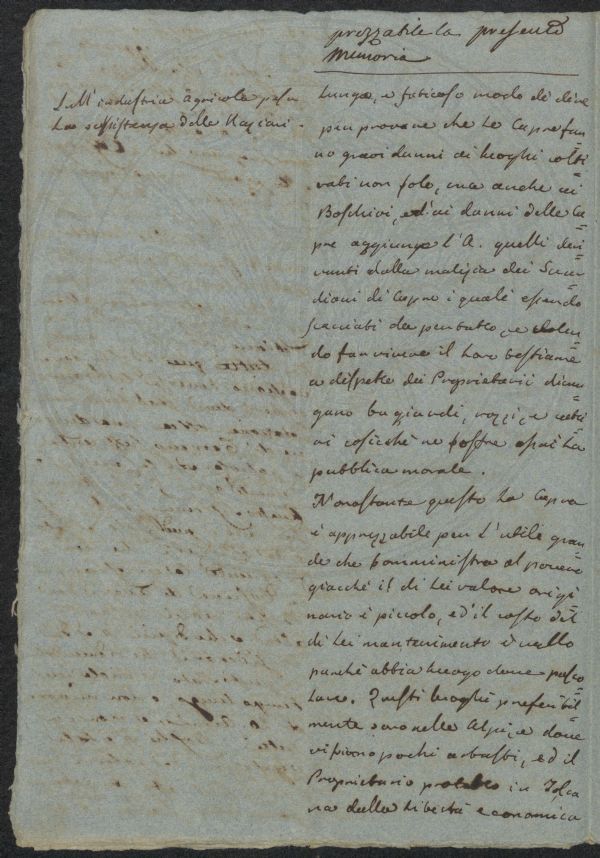 prezzabile la presente
Memoria
L'industria agricola per
la sussistenza delle Nazioni.
Lungo, e faticoso modo di dire
piu provare che le Capre fan
no gravi danni ai luoghi colti
vati non solo, ma anche ai
Boschivi, ed ai danni delle Ca
pre aggiunge l'A. quelli deri
vanti dalla malizia dei Guar
diani di Capre i quali essendo
scacciati da per tutto, e volen
do far vivere il loro bestiame
a dispetto dei Proprietarii diven
gano bugiardi, rozzi, e catti
vi cosicché ne soffre assai la
pubblica morale.
Nonostante questo la Capra
è apprezzabile per l'utile gran
de che somministra al povero
giacché il di lei valore origi
nario è piccolo, ed il costo del
di lei mantenimento è nullo
purché abbia luogo dove pasco
lare. Questi luoghi preferibil
mente sono nelle Alpi, e dove
vi sono pochi arbusti, ed il
Proprietario protetto in Tosca
na dalla libertà economica